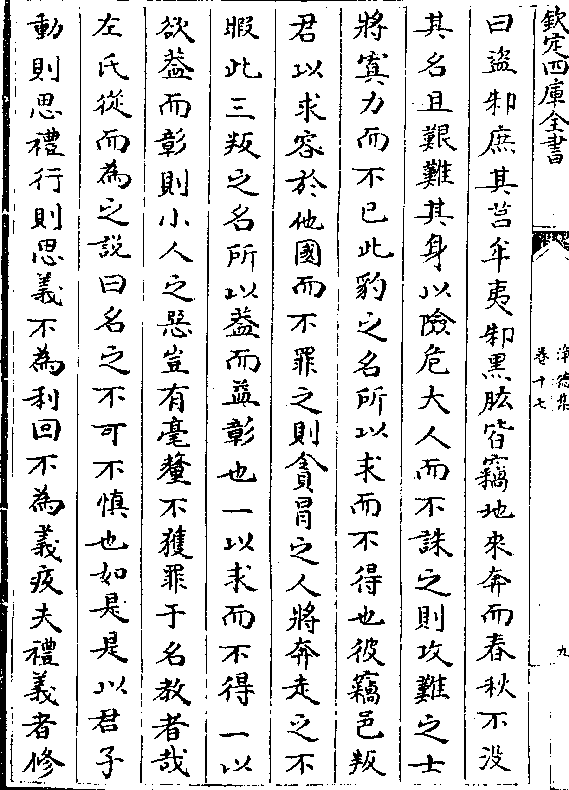 欽定四庫全書
淨德集
卷十七
九
曰盜邾庶其莒牟夷邾黑肱皆竊地來奔而春秋不没
其名且艱難其身以險危大人而不誅之則攻難之士
將寘力而不已此豹之名所以求而不得也彼竊邑叛
君以求容於他國而不罪之則貪冒之人將奔走之不
暇此三叛之名所以葢而益彰也一以求而不得一以
欲葢而彰則小人之惡豈有毫釐不獲罪于名教者哉
左氏從而為之說曰名之不可不慎也如是是以君子
動則思禮行則思義不為利回不為義疚夫禮義者修